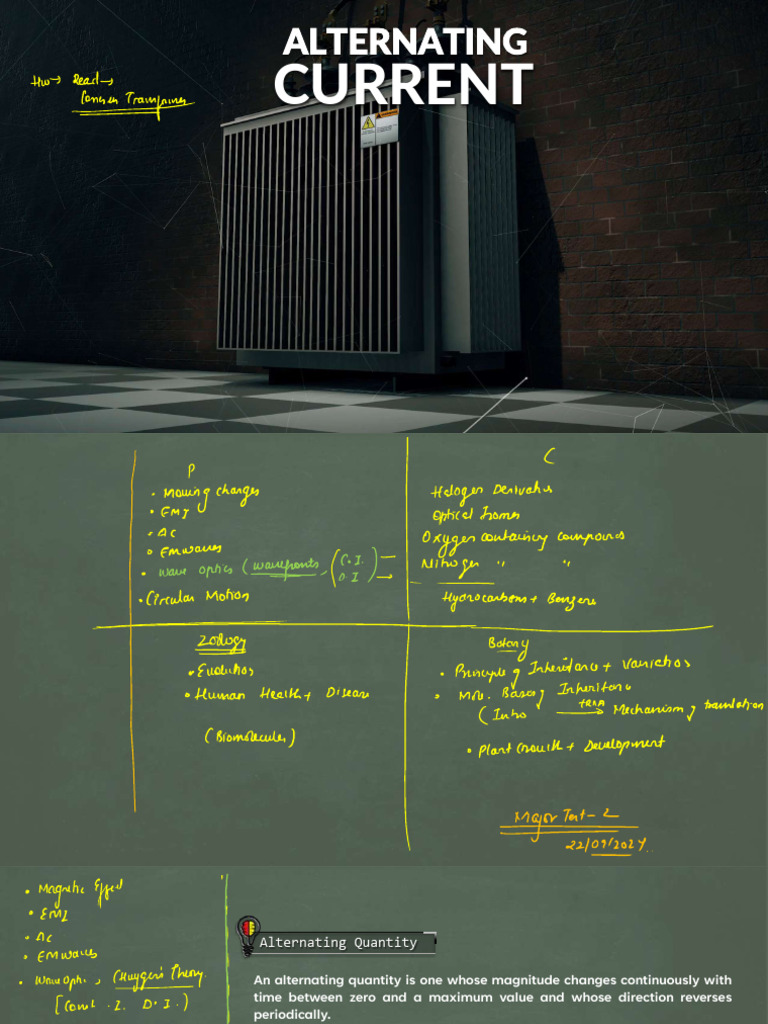 ALTERNATING
CURRENT
Hw → Read →
Transformer
P
• Moving charges
• EMI
• AC
• EM waves
• Wave optics (wavefronts, (C.I.
D.I)
• Circular Motion
C
Halogen Derivative
Optical Isomer
Oxygen containing compounds
Nitrogen " "
Hydrocarbons + Benzene
Zoology
• Evolution
• Human Health + Disease
(Biomolecules)
Botany
• Principle of Inheritance + Variation
• Mole. Basis of Inheritance
(Intro tRNA → Mechanism of translation
• Plant Growth + Development
Major Test - 2
22/09/2024.
• Magnetic Effect
• EMI
• AC
• EM waves
• Wave Optic, (Huygen's Theory.
[Const. I. D. I.)
Alternating Quantity
An alternating quantity is one whose magnitude changes continuously with
time between zero and a maximum value and whose direction reverses
periodically.